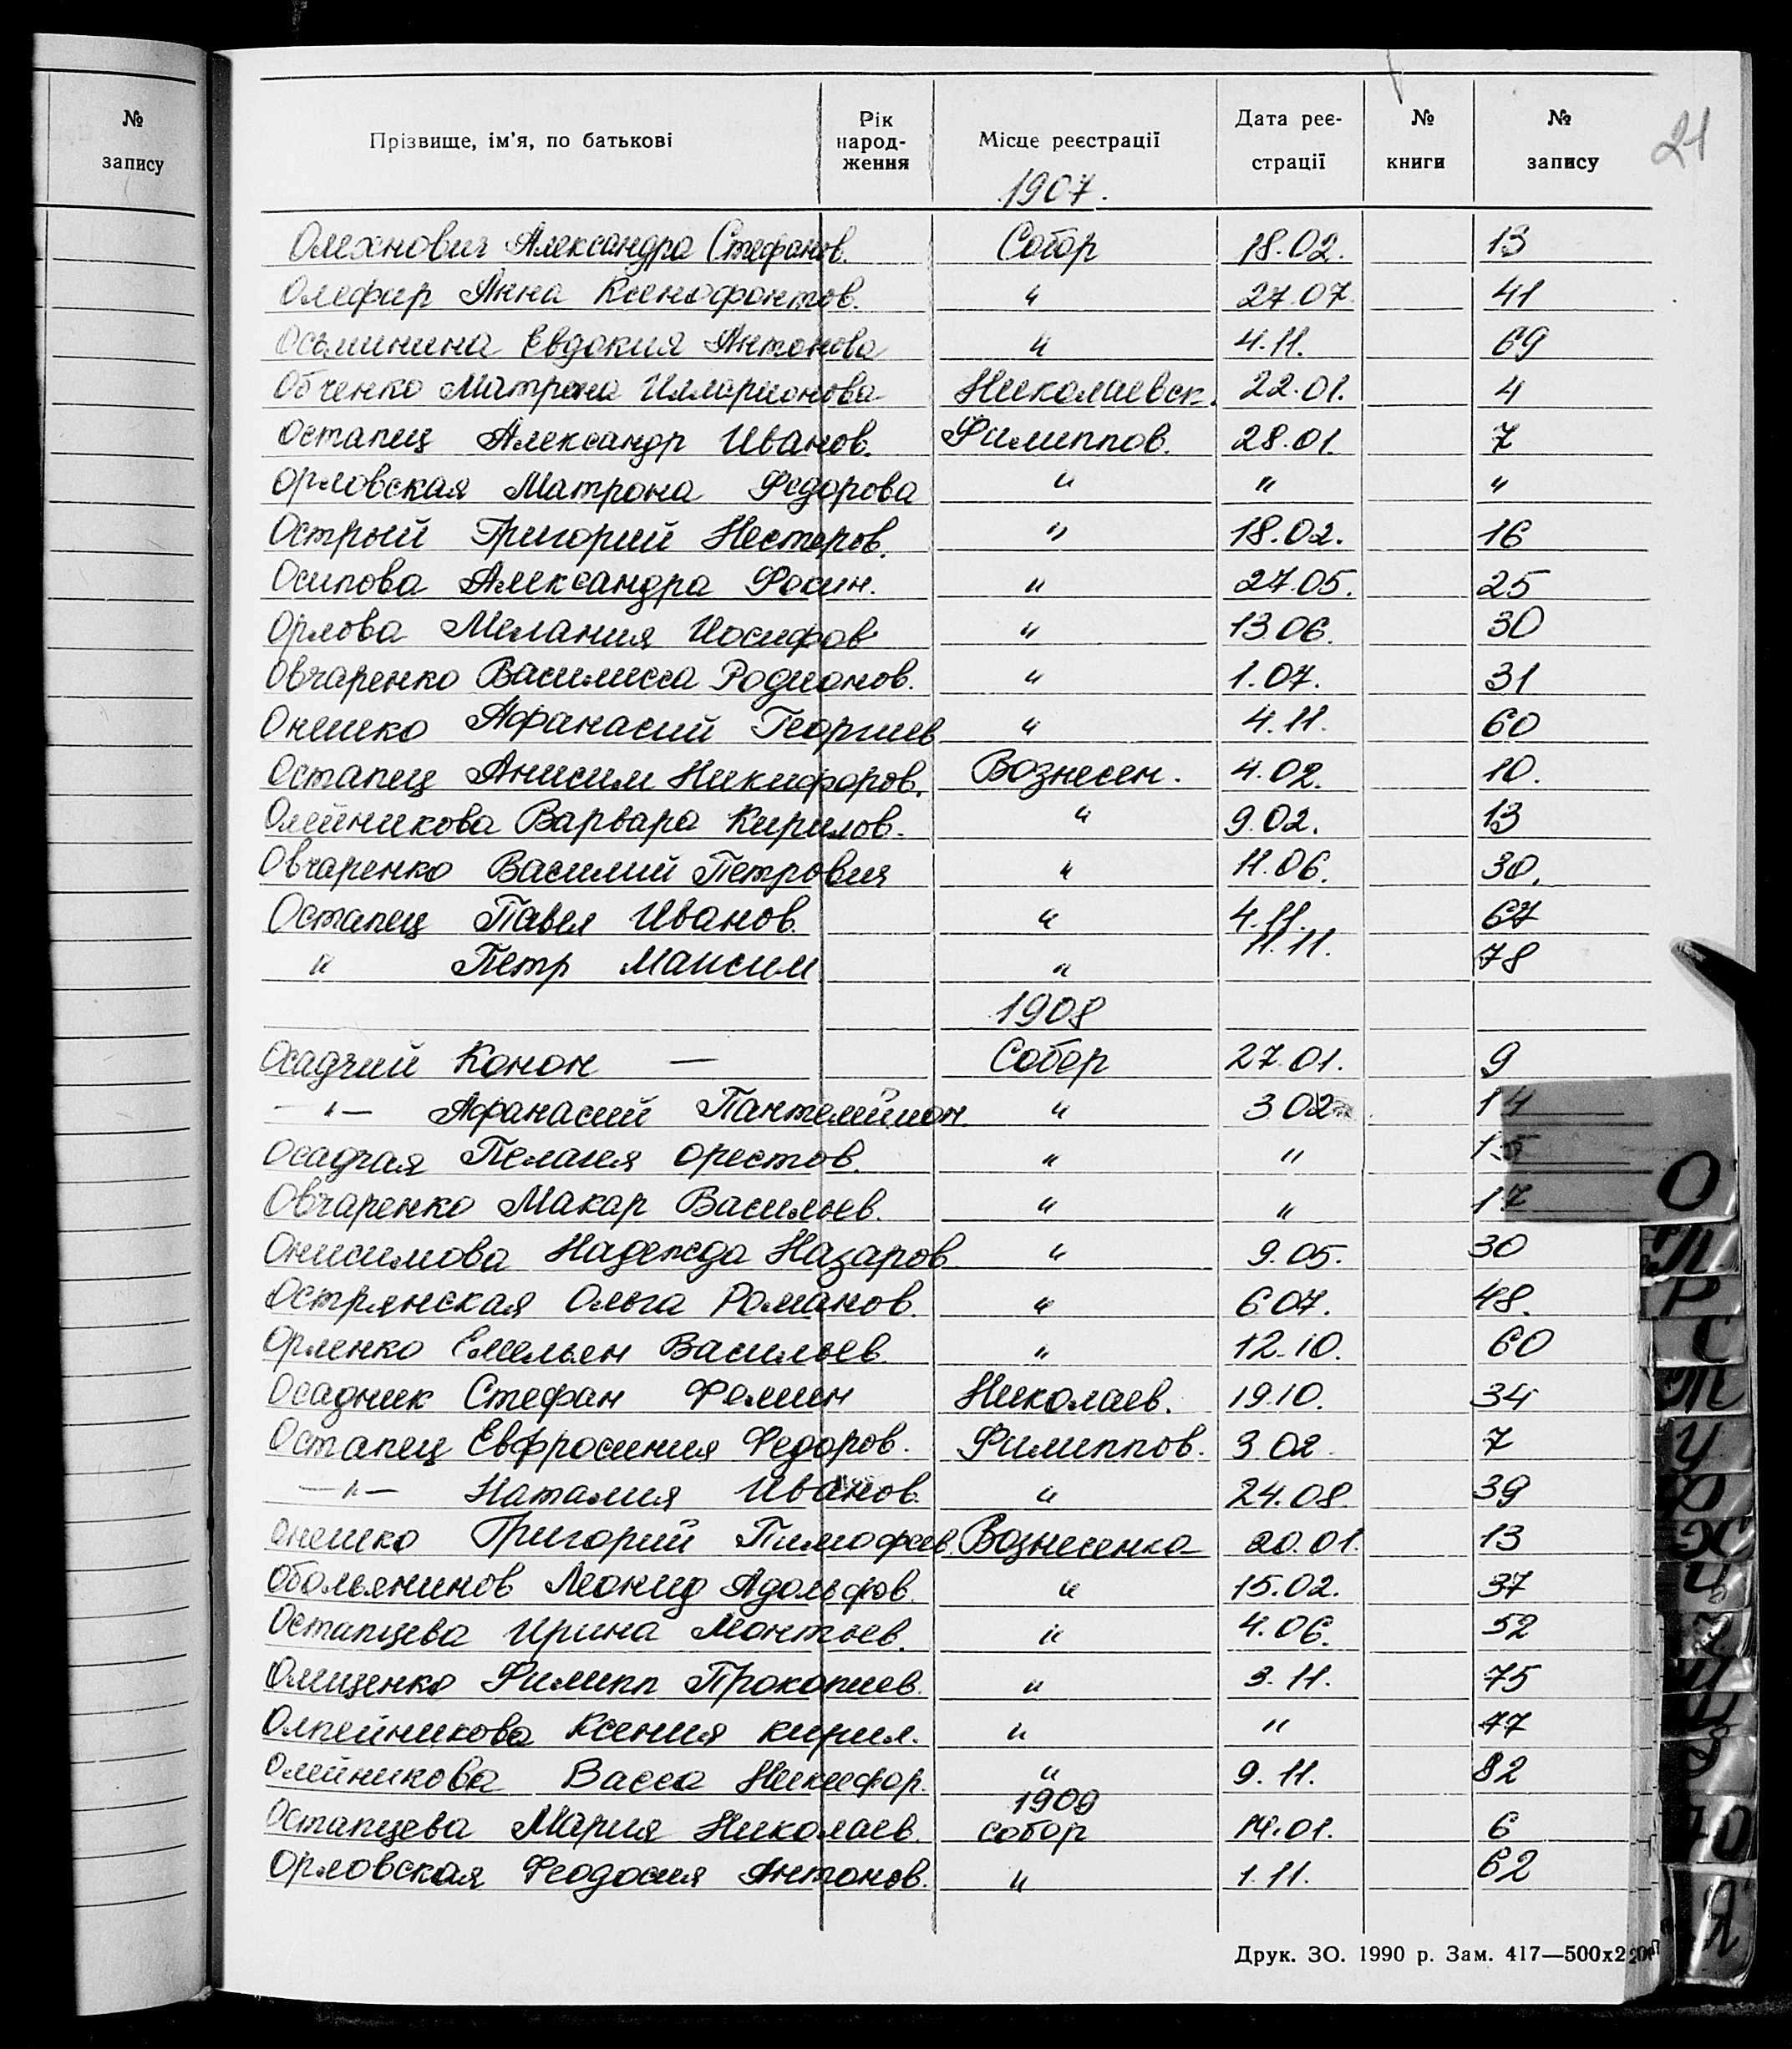 № запису
Прізвище, ім'я, по батькові Рік народ-ження Місце реєстрації Дата реє-страції № книги № запису 21
1907.
Олехнович Александра Стефанов. Собор 18.02. 13
Олефир Анна Ксенофонтов. " 27.07. 41
Осьминина Евдокия Антонова " 4.11. 69
Обченко Матрена Илларионова Николаевск. 22.01. 4
Остапец Александр Иванов. Филиппов. 28.01. 7
Орловская Матрона Федорова " " "
Острый Григорий Нестеров. " 18.02. 16
Осипова Александра Фосин. " 27.05. 25
Орлова Мелания Иосифов " 13.06. 30
Овчаренко Василисса Родионов. " 1.07. 31
Онешко Афанасий Георгиев " 4.11. 60
Остапец Анисим Никифоров. Вознесен. 4.02. 10.
Олейникова Варвара Кирилов. " 9.02. 13
Овчаренко Василий Петрович " 11.06. 30.
Остапец Павел Иванов. " 4.11. 67
" Петр Максим " 11.11. 78
1908
Осадчий Конон — Собор 27.01. 9
—"— Афанасий Пантелеймон. " 3 02 14
Осадчая Пелагея Орестов. " " 15
Овчаренко Макар Васильев. " " 17
Онисимова Надежда Назаров " 9.05. 30
Острянская Ольга Романов. " 6.07. 48.
Орленко Емельян Васильев. " 12.10. 60
Осадник Стефан Фомин Николаев. 19.10. 34
Остапец Евфросиния Федоров. Филиппов. 3.02. 7
—"— Наталия Иванов. " 24.08. 39
Онешко Григорий Тимофеев. Вознесенка 20.01. 13
Обольянинов Леонид Адольфов. " 15.02. 37
Остапцева Ирина Леонтьев. " 4.06. 52
Олищенко Филипп Прокопиев. " 3.11. 75
Олпейникова Ксения Кирил. " " 77
Олейникова Васса Никифор. " 9.11. 82
1909
Остапцева Мария Николаев. Собор 14.01. 6
Орловская Феодосия Антонов. " 1.11. 62
Друк. ЗО. 1990 р. Зам. 417—500х2
О
П
Р
С
Т
У
Ф
Х
Ц
Ю
Я